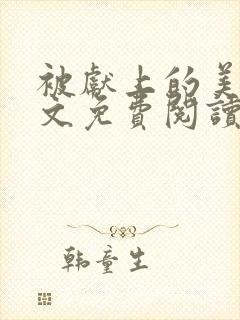 被獻上的美
文免費閱讀
韩童生